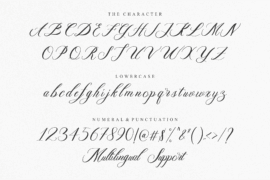 THE CHARACTER
ABCDEFGHIJKLMN
OPQRSTUVWXYZ
LOWERCASE
abcdefghijklmnopqrstuvwxyz
NUMERAL & PUNCTUATION
1234567890!@#$%^&*();:<>/?
Multilingual Support